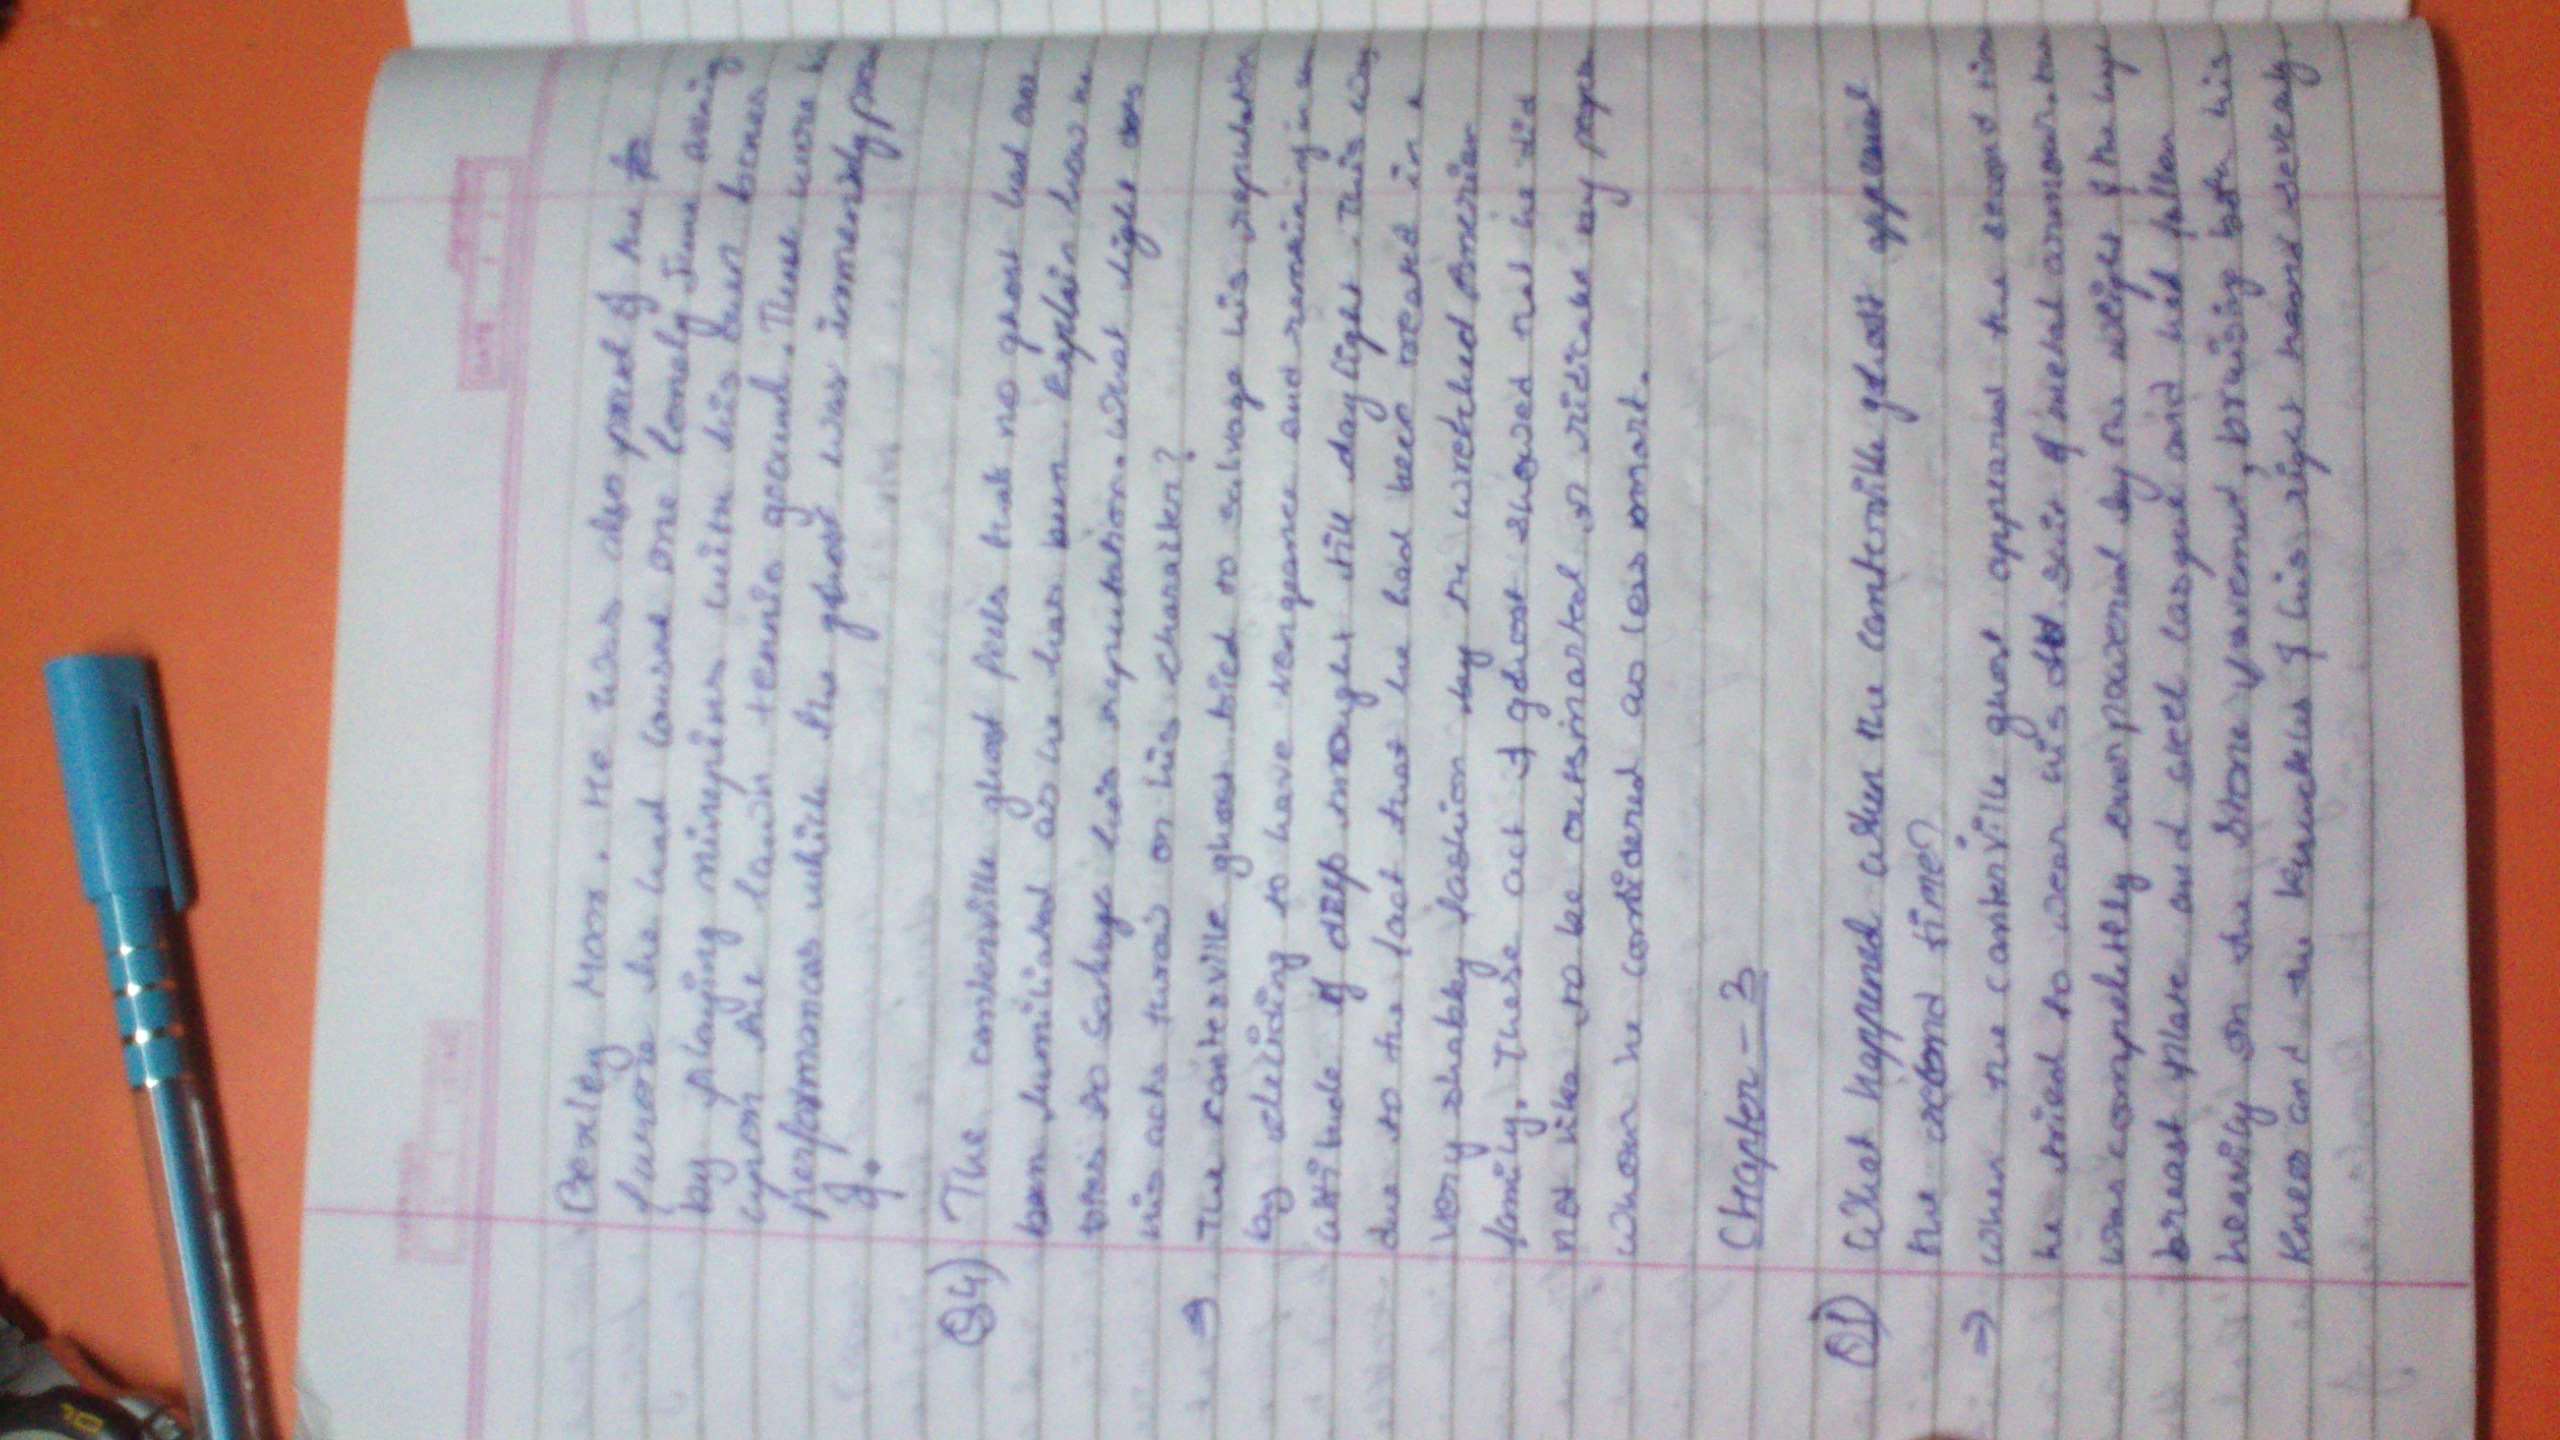 Bexley Moor. He was also proud of the
furore he had caused one lonely June evening
by playing ninepins with his own bones
upon the lawn tennis ground. These were
performances which the ghost was immensely
of.
Q4) The canterville ghost feels that no ghost had ever
been humiliated as he has been. Explain how he
tries to salvage his reputation. What light does
his acts throw on his character?
⇒ The canterville ghost tried to salvage his reputation
by deciding to have vengeance and remaining in
attitude of deep thought till daylight. This was
due to the fact that he had been treated in a
very shabby fashion by the wretched American
family. These act of ghost showed that he did
not like to be outsmarted or ridicule by
whom he considered as less smart.
Chapter - 3
Q1) What happened when the canterville ghost appeared
the second time?
⇒ When the canterville ghost appeared the second time
he tried to wear his old suit of metal armour.
was completely overpowered by the weight of the huge
breast plate and steel casque and had fallen
heavily on the stone pavement, bruising both his
knees and the knuckles of his right hand severely